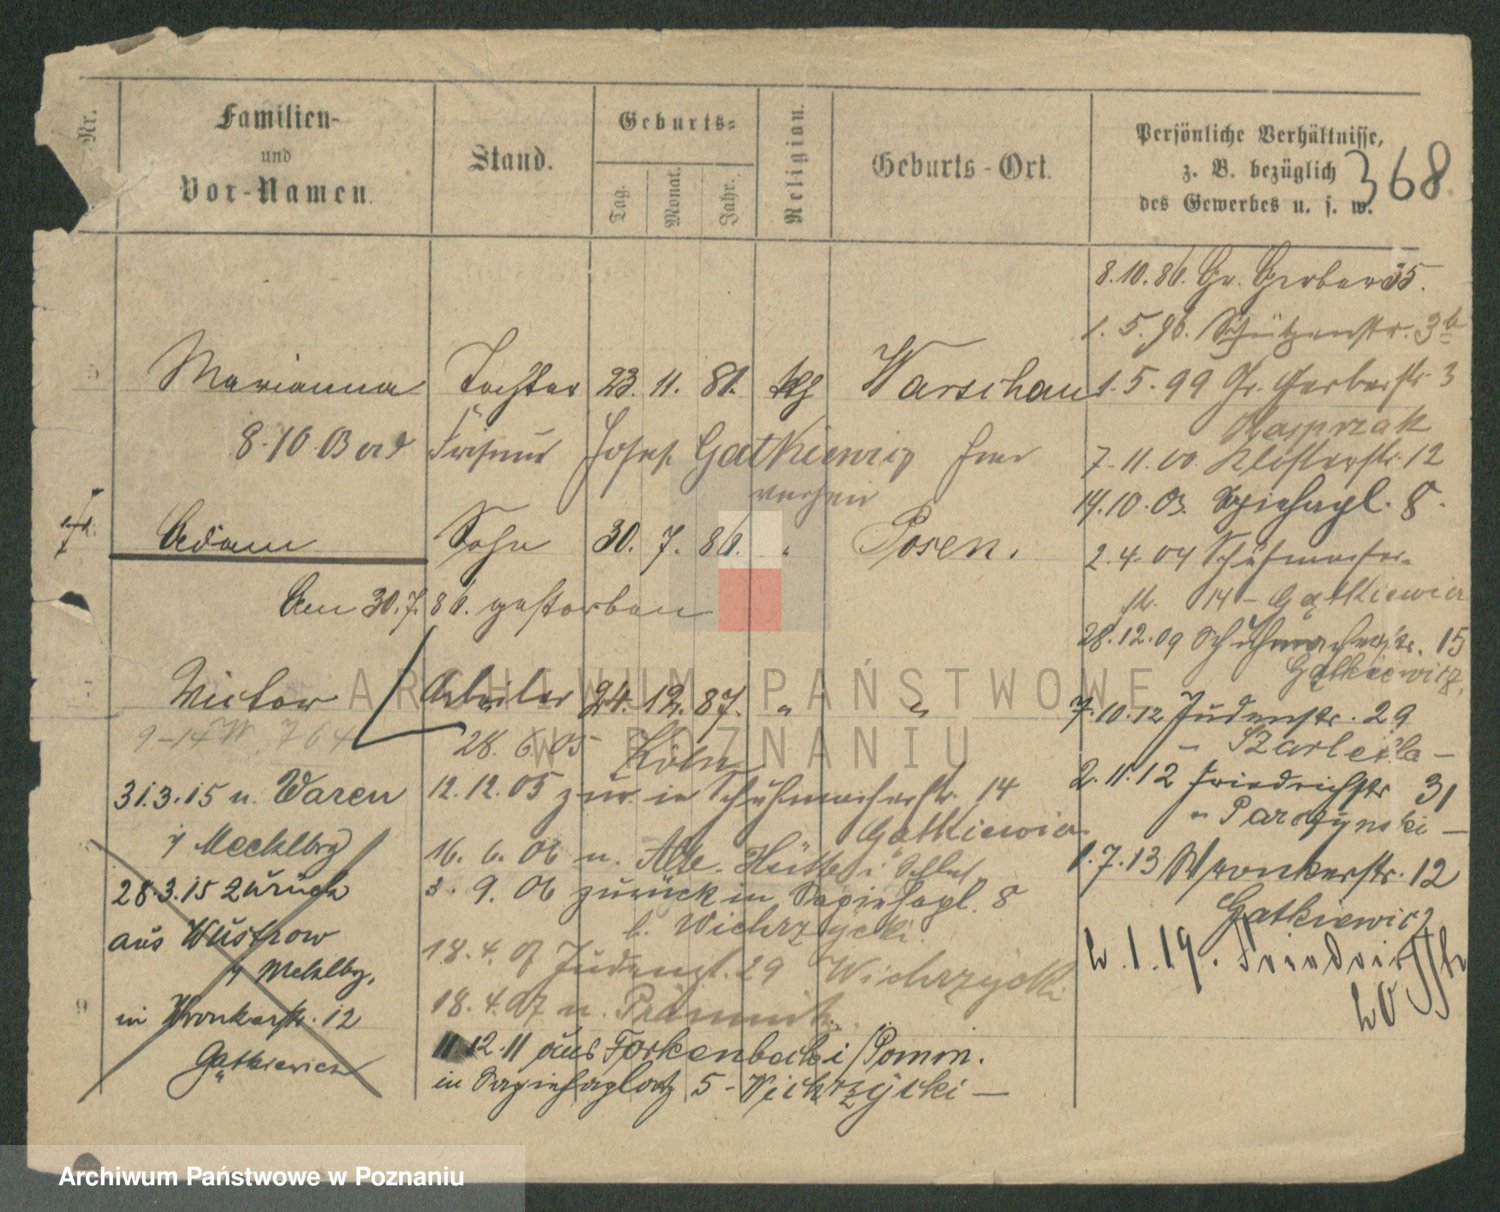 Nr.
Familien-
und
Vor-Namen.
Stand.
Geburts-
Tag.
Monat.
Jahr.
Religion.
Geburts-Ort.
Persönliche Verhältnisse,
z. B. bezüglich
des Gewerbes u. s. w.
368
8.10.86. Gr. Gerber 35.
1.5.96. Schützenstr. 3b
Marianna Tochter 23. 11. 81. kth Warschau
1.5.99 Gr. Gerberstr. 3
Kasprzak
8.10.03 Friseur Josef Gatkiewicz
7.11.00. Klosterstr. 12
14.10.03. Sapiehapl. 8.
Adam Sohn 30. 7. 86. " Posen.
2.4.04 Schuhmacher-
str. 14 - Gatkiewicz
Am 30.7.86. gestorben
28.12.09 Schuhmacherstr. 15
Gątkiewicz,
Victor Arbeiter 24. 12. 87. " "
7.10.12 Judenstr. 29
9-14 764
28. 6. 05 Köln
" Szarletta -
31.3.15 n. Waren
12.12.05 zur. in Schuhmacherstr. 14
Gatkiewicz
2.11.12 Friedrichstr 31
" Parczynski -
i/ Mecklbg
16. 6. 06 n. Alte Hütte
28.3.15 zurück
3. 9. 06 zurück in Sapiehapl. 8
b. Wichrzycki.
1.7.13 Wronkerstr. 12
Gatkiewicz
aus Wustrow
i/ Mecklbg.
18.4.07 Judenstr. 29 Wichrzycki
2.1.19. Friedrichstr
20
in Wronkerstr. 12
Gątkiewicz
18.4.07 n.
11.12.11 aus Forkenbeck i/Pomm.
in Sapiehaplatz 5 - Wichrzycki -
ARCHIWUM PAŃSTWOWE
W POZNANIU
Archiwum Państwowe w Poznaniu